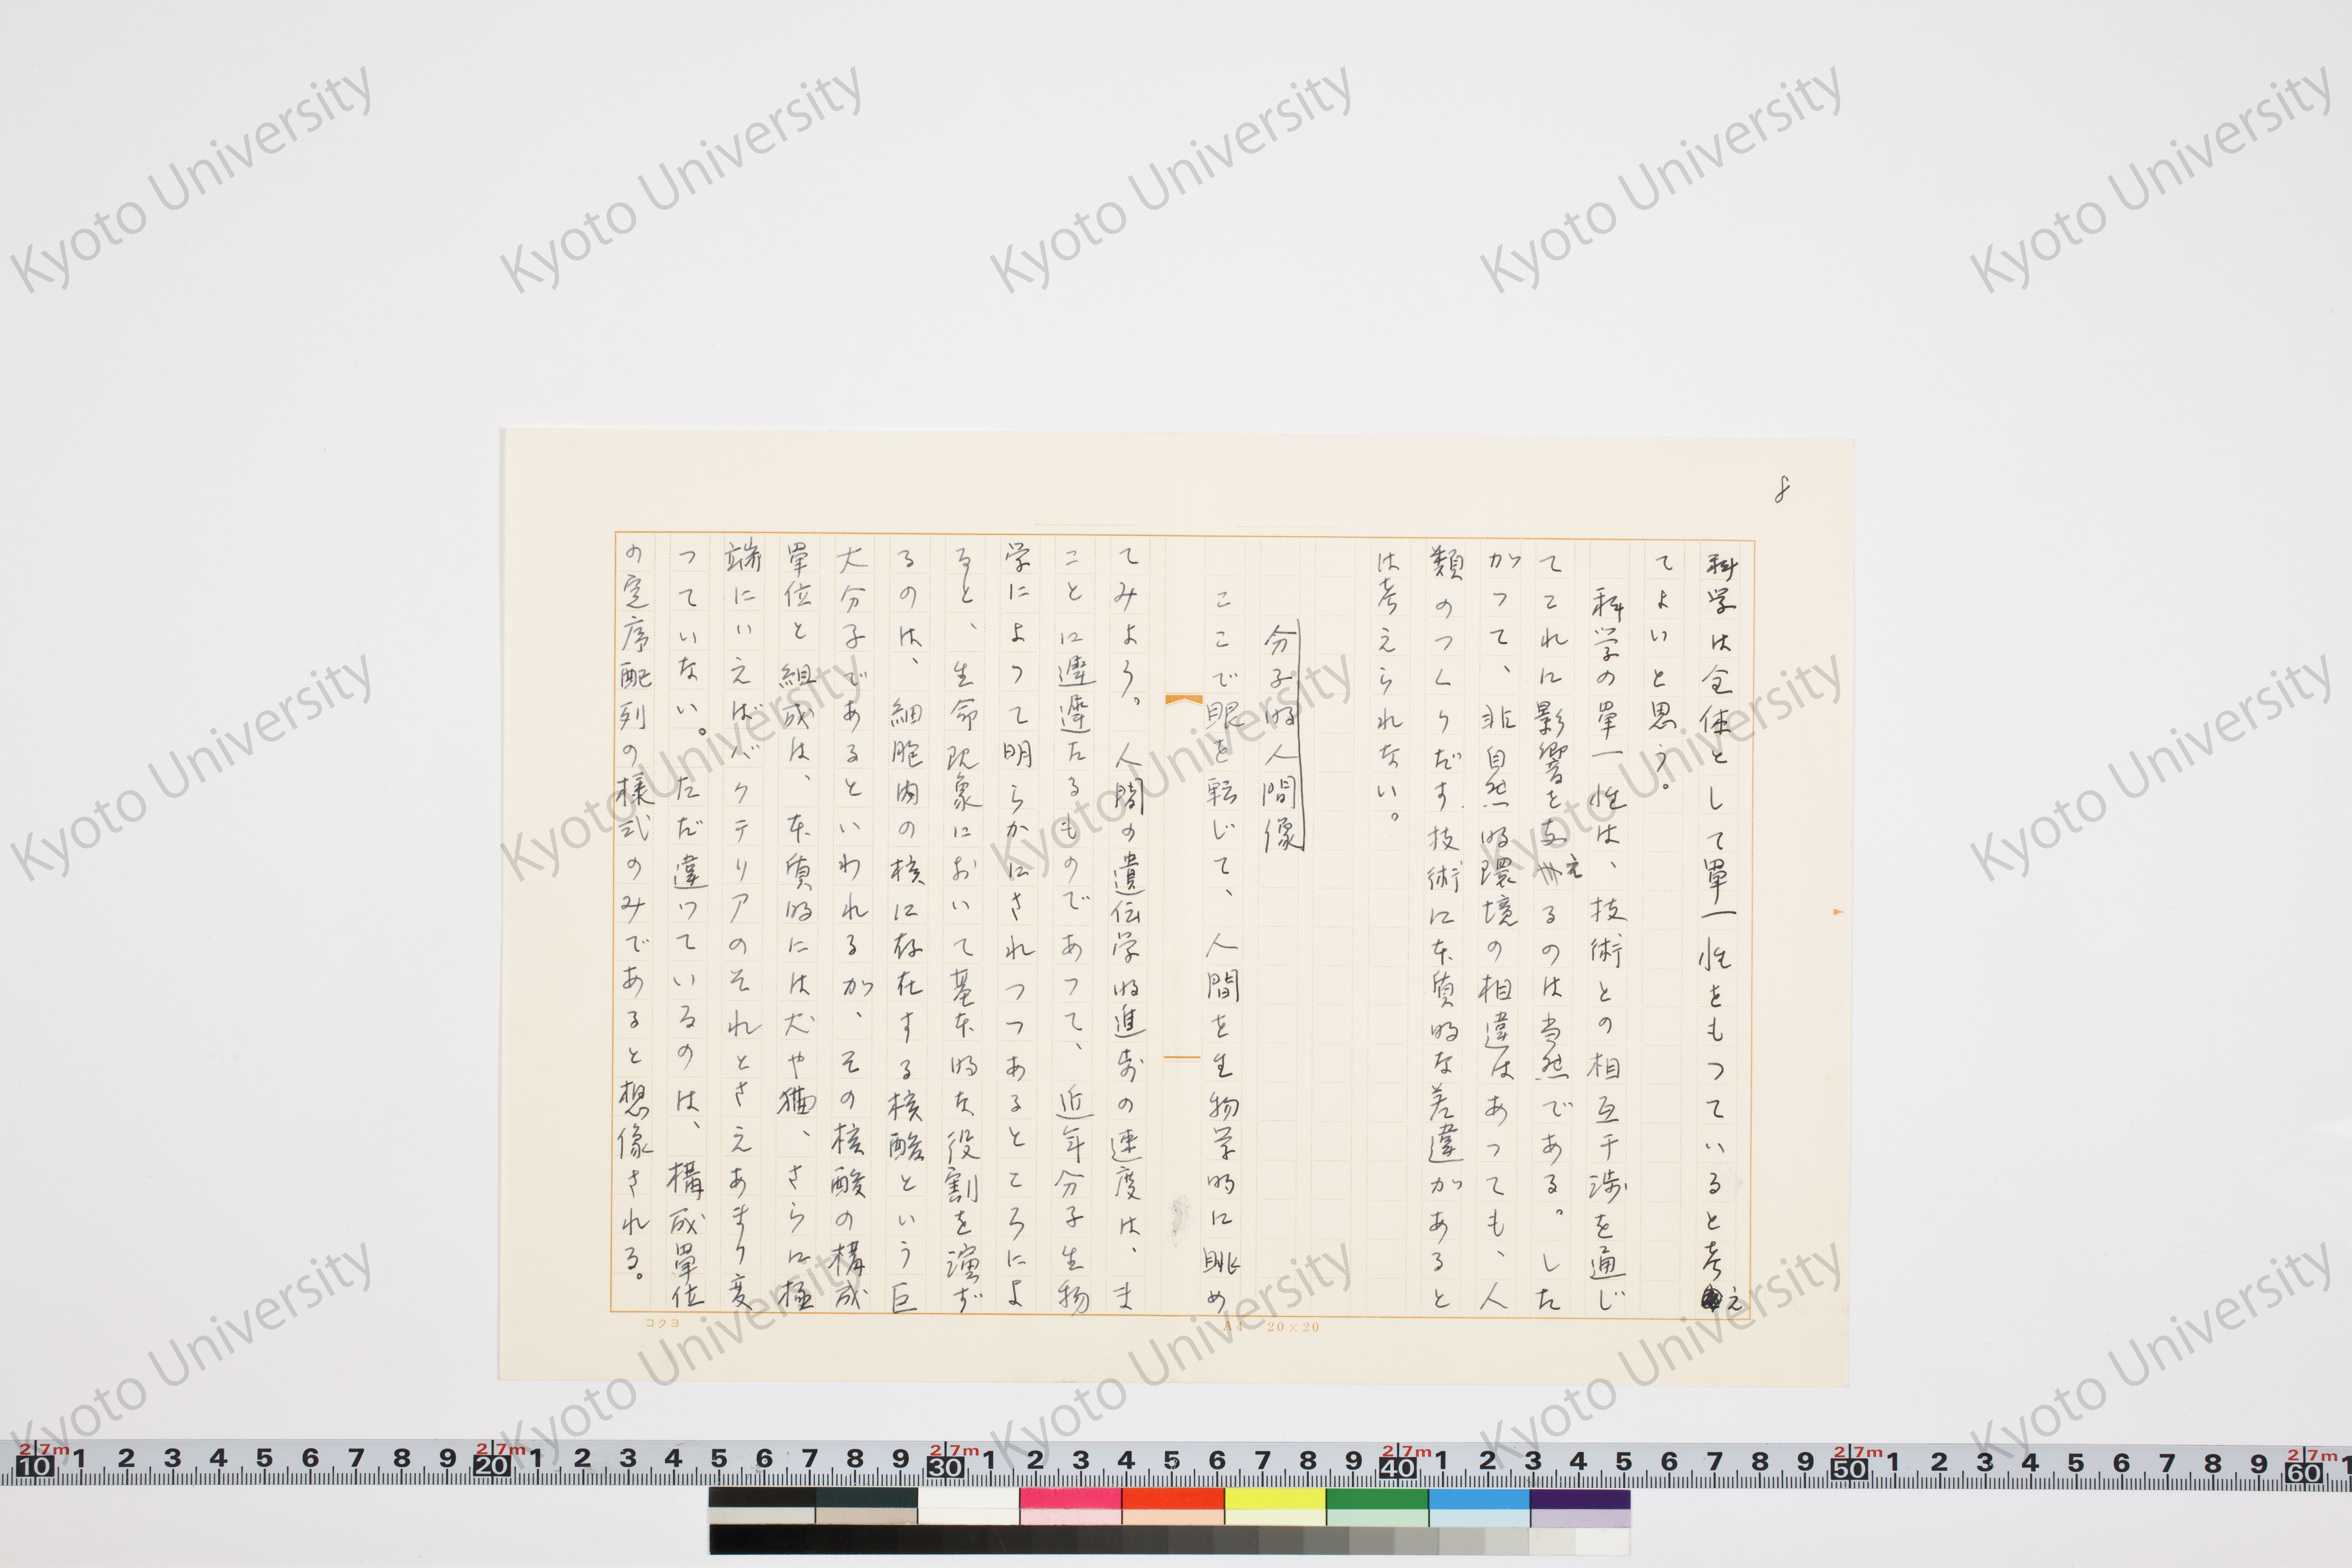 8
科学は全体として單一性をもっていると考え
てよいと思う。
科学の單一性は、技術との相互干渉を通じ
てこれに影響を与えるのは当然である。した
がって、非自然的環境の相違はあっても、人
類のつくりだす技術に本質的な差違があると
は考えられない。
分子的人間像
ここで眼を転じて、人間を生物学的に眺め
てみよう。人間の遺伝学的進歩の速度は、ま
ことに遅遅たるものであって、近年分子生物
学によって明らかにされつつあるところによ
ると、生命現象において基本的な役割を演ず
るのは、細胞内の核に存在する核酸という巨
大分子であるといわれるが、その核酸の構成
單位と組成は、本質的には犬や猫、さらに極
端にいえばバクテリアのそれとさえあまり変
っていない。ただ違っているのは、構成單位
の定序配列の様式のみであると想像される。
コクヨ
A4 20×20
Kyoto University